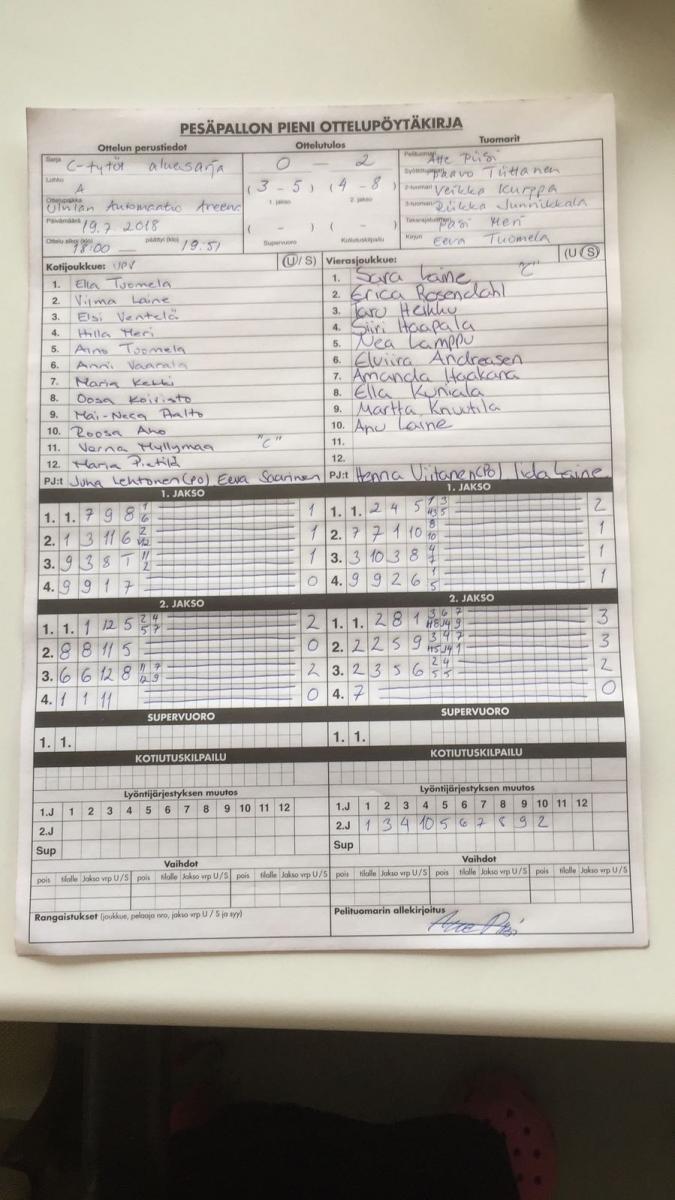 PESÄPALLON PIENI OTTELUPÖYTÄKIRJA
Ottelun perustiedot Ottelutulos Tuomarit
Sarja C-tytöt aluesarja
0 — 2
Pelituomari Atte Piisi
Syöttötuomari Paavo Tiittanen
Lohko A
(3 - 5) (4 - 8)
1. jakso 2. jakso
2-tuomari Veikka Kurppa
Ottelupaikka Ulvilan Automantie Areena
3-tuomari Riikka Junnikkala
Päivämäärä 19.7.2018
( - ) ( - )
Takarajatuomari Pasi Meri
Ottelu alkoi (klo) 18:00 — päättyi (klo) 19:51
Supervuoro Kotiutuskilpailu
Kirjuri Eeva Tuomela
Kotijoukkue: UPV (U/S)
1. Ella Tuomela
2. Vilma Laine
3. Elsi Ventelä
4. Hilla Meri
5. Aino Tuomela
6. Anni Vaarala
7. Maria Kekki
8. Oosa Koivisto
9. Mai-Neea Aalto
10. Roosa Aho
11. Verna Myllymaa "C"
12. Maria Pietilä
PJ:t Juha Lehtonen (PO) Eeva Saarinen
Vierasjoukkue: (U/S)
1. Sara Laine "C"
2. Erica Rosendahl
3. Taru Heikku
4. Siiri Haapala
5. Nea Lamppu
6. Elviira Andreasen
7. Amanda Haakana
8. Ella Kuniala
9. Martta Knuutila
10. Anu Laine
11.
12.
PJ:t Henna Viitanen (PO) Iida Laine
1. JAKSO
1. 1. 7 9 8 1 6 1
2. 1 3 11 6 2 12 1
3. 9 3 8 T 11 2 1
4. 9 9 1 7 0
1. JAKSO
1. 1. 2 4 5 1 3 43 5 2
2. 7 7 1 10 8 10 1
3. 3 10 3 8 4 7 1
4. 9 9 2 6 1 5 1
2. JAKSO
1. 1. 1 12 5 2 4 5 7 2
2. 8 8 11 5 0
3. 6 6 12 8 11 7 12 9 2
4. 1 1 11 0
2. JAKSO
1. 1. 2 8 1 3 6 7 3
2. 2 2 5 9 3 4 7 3
3. 2 3 5 6 2 4 5 5 2
4. 7 0
SUPERVUORO SUPERVUORO
1. 1. 1. 1.
KOTIUTUSKILPAILU KOTIUTUSKILPAILU
Lyöntijärjestyksen muutos
1.J 1 2 3 4 5 6 7 8 9 10 11 12
2.J
Sup
Lyöntijärjestyksen muutos
1.J 1 2 3 4 5 6 7 8 9 10 11 12
2.J 1 3 4 10 5 6 7 8 9 2
Sup
Vaihdot
pois tilalle Jakso vrp U/S pois tilalle Jakso vrp U/S pois tilalle Jakso vrp U/S
Vaihdot
pois tilalle Jakso vrp U/S pois tilalle Jakso vrp U/S pois tilalle Jakso vrp U/S
Rangaistukset (joukkue, pelaaja nro, jakso vrp U / S ja syy)
Pelituomarin allekirjoitus Atte Piisi